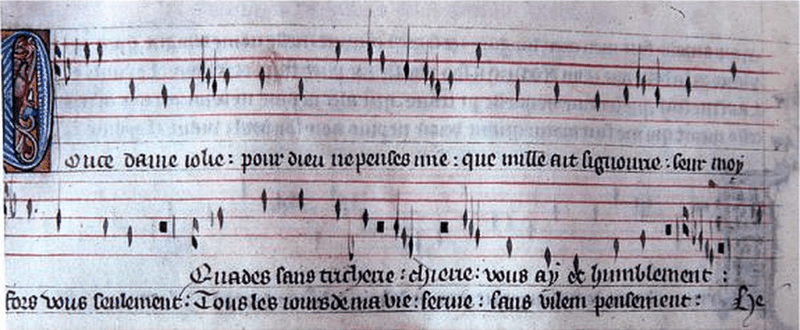 Douce dame iolie : pour dieu ne penses mie : que nulle ait signourie : seur moy
Quades sans tricherie : chierie : vous ay et humblement :
fors vous seulement : Tous les iours de ma vie : servie : sans vilein pensement : He